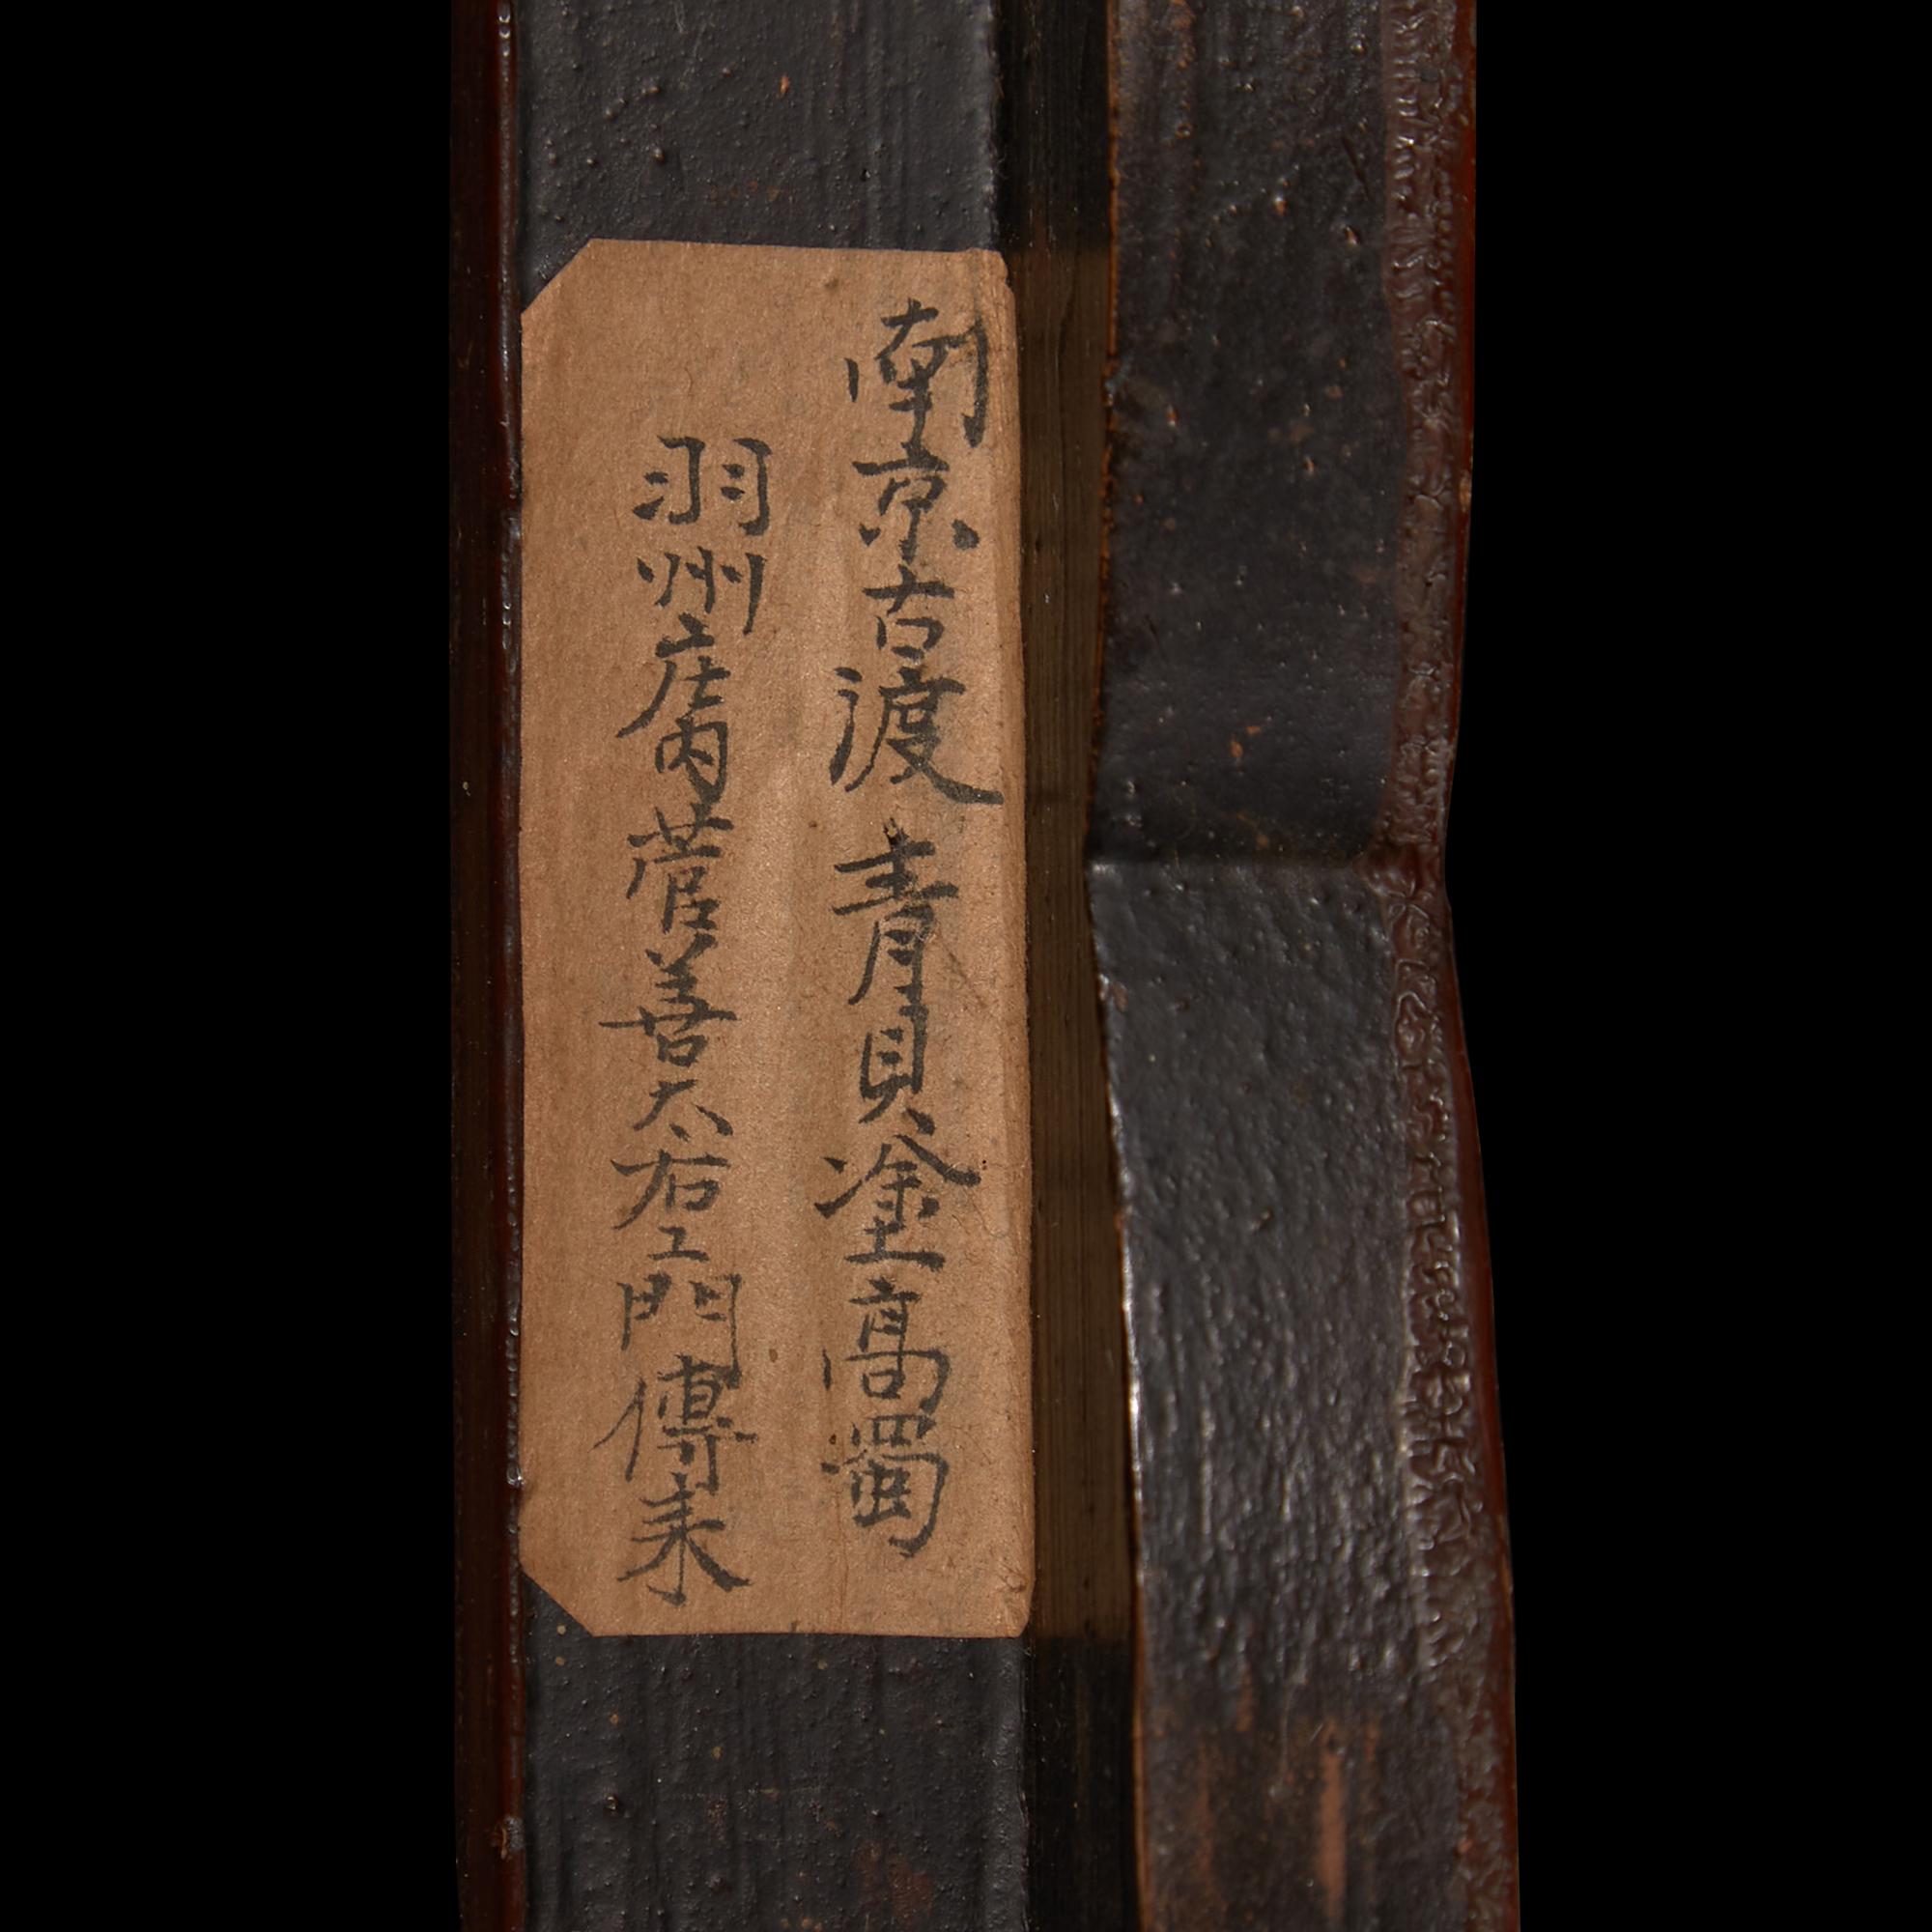 南京古渡青貝塗高蜀
羽州庄内菅善太右工門傳来